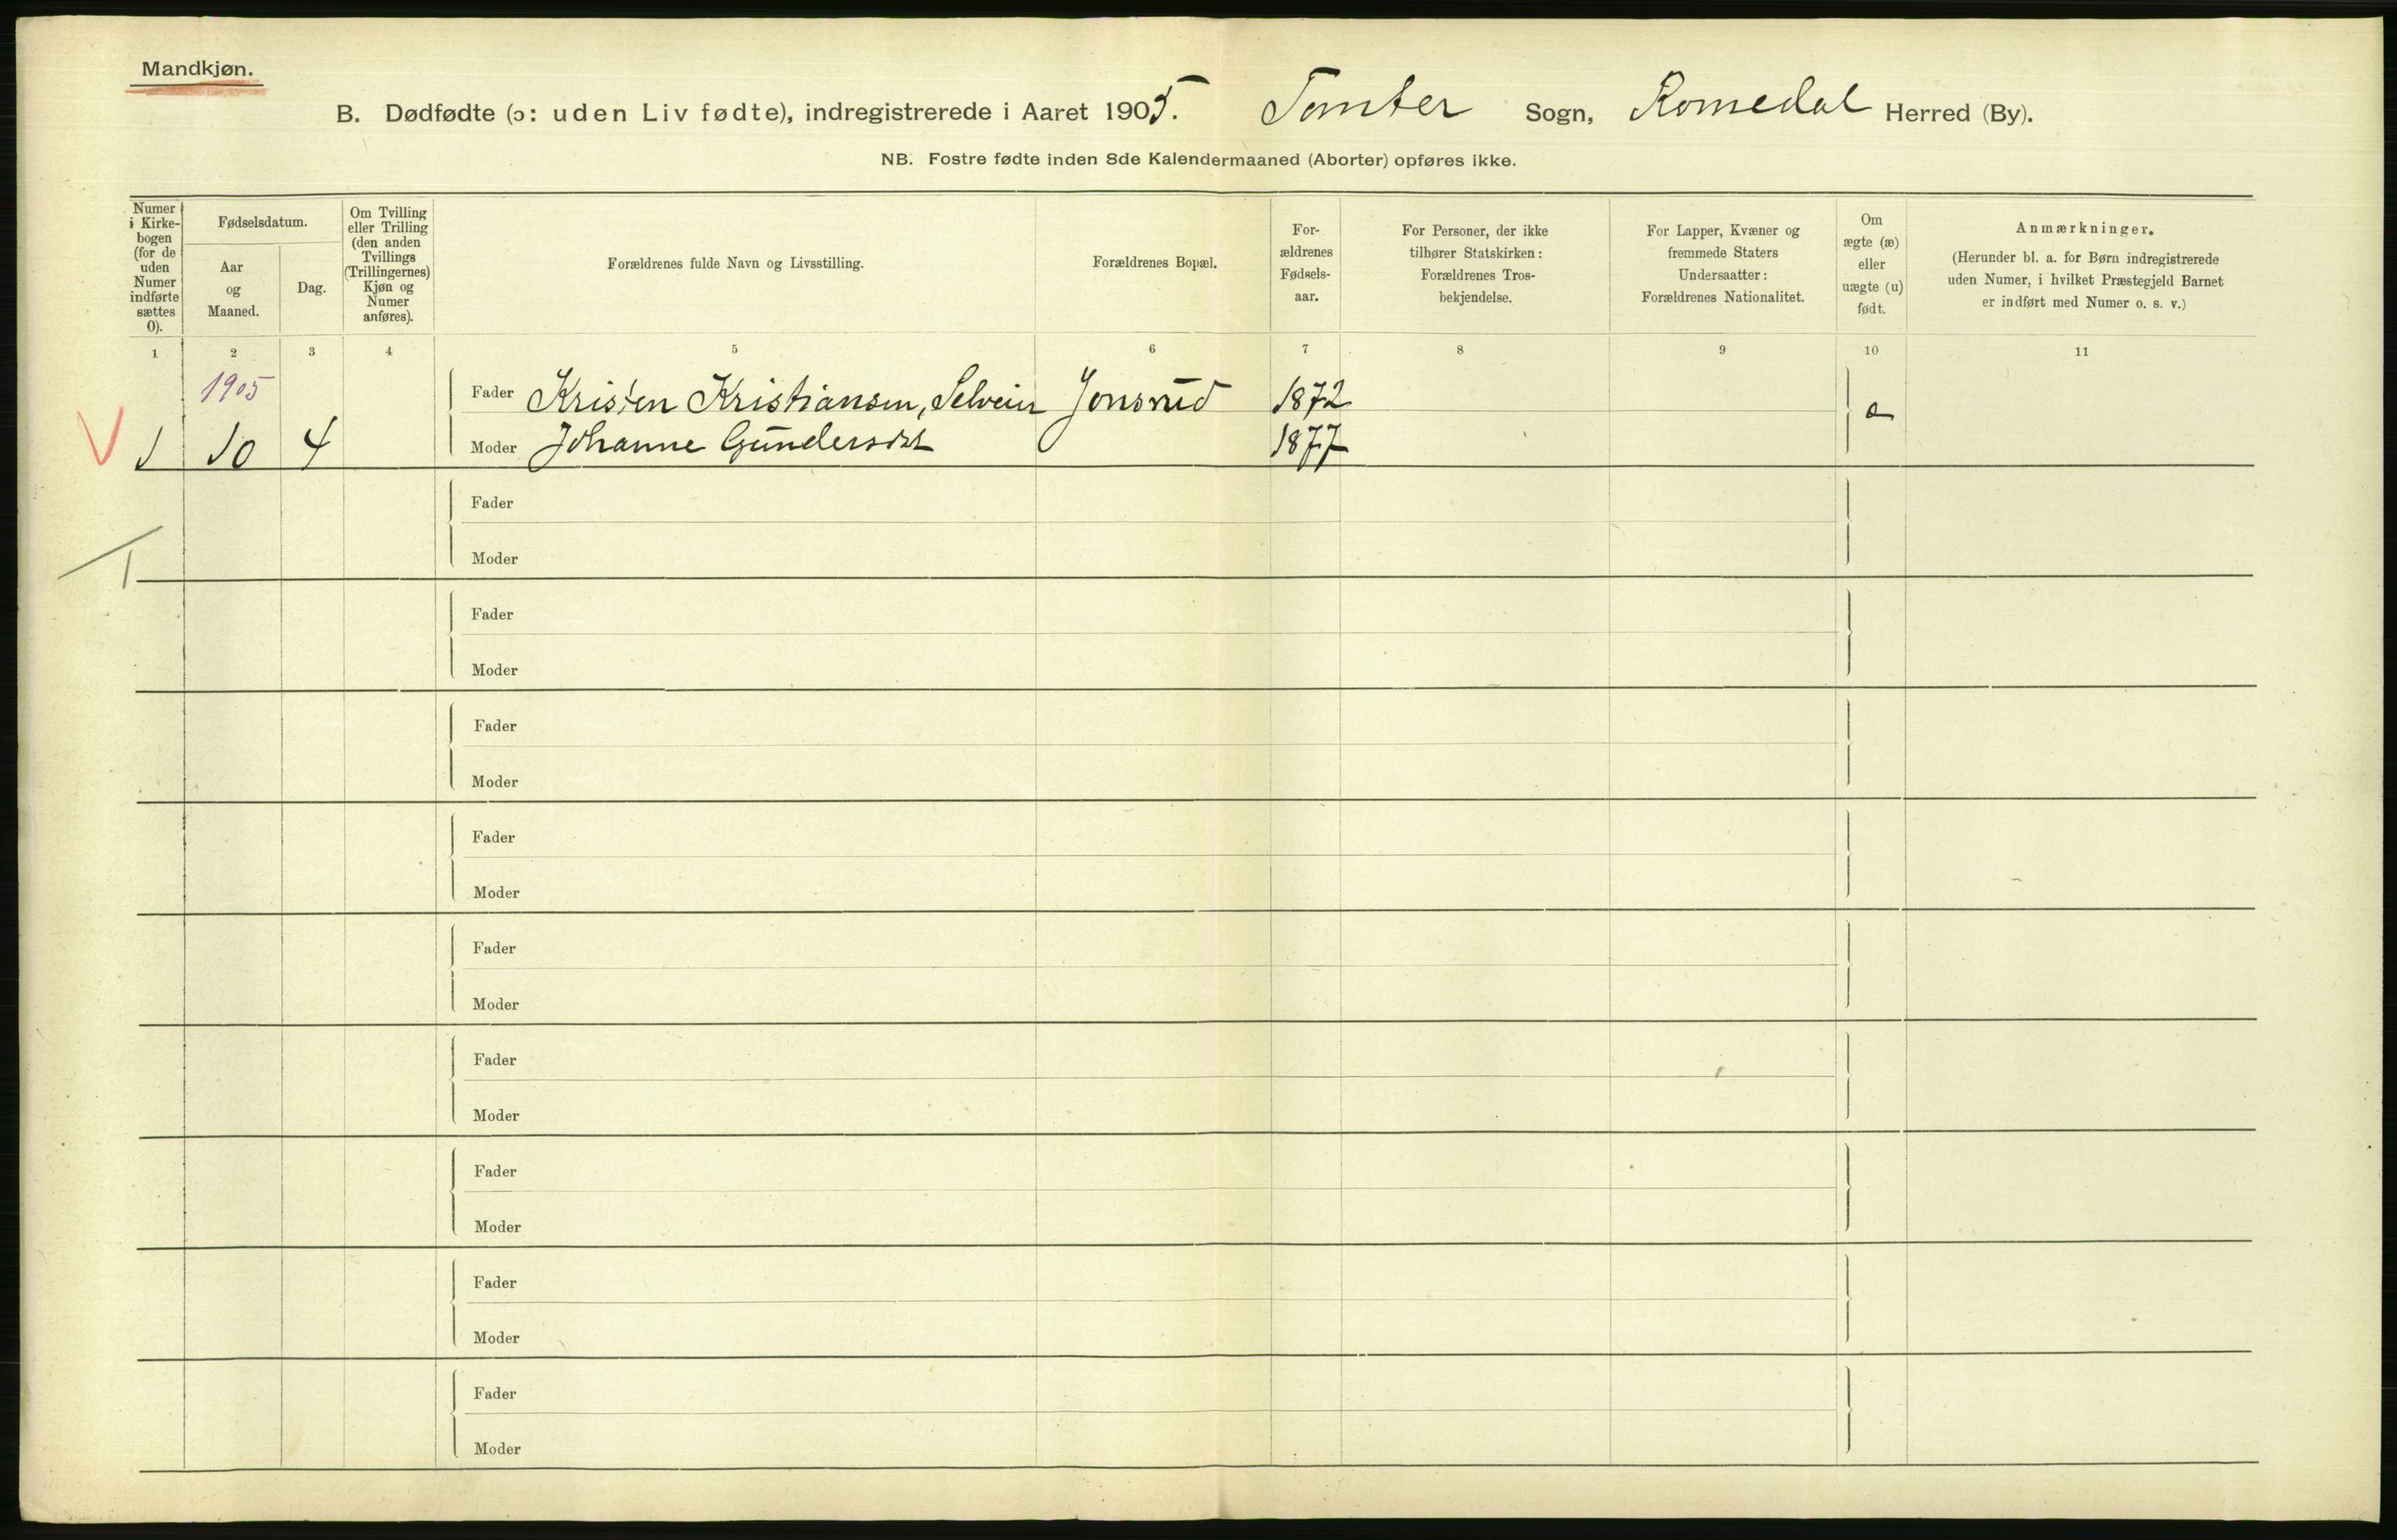 Mandkjøn.
B. Dødfødte (ɔ: uden Liv fødte), indregistrerede i Aaret 1905. Tomter Sogn, Romedal Herred (By).
NB. Fostre fødte inden 8de Kalendermaaned (Aborter) opføres ikke.
Numer i Kirke-bogen (for de uden Numer indførte sættes 0).
Fødselsdatum.
Aar og Maaned.
Dag.
Om Tvilling eller Trilling (den anden Tvillings (Trillingernes) Kjøn og Numer anføres).
Forældrenes fulde Navn og Livsstilling.
Forældrenes Bopæl.
For-ældrenes Fødsels-aar.
For Personer, der ikke tilhører Statskirken: Forældrenes Tros-bekjendelse.
For Lapper, Kvæner og fremmede Staters Undersaatter: Forældrenes Nationalitet.
Om ægte (æ) eller uægte (u) født.
Anmærkninger.
(Herunder bl. a. for Børn indregistrerede uden Numer, i hvilket Præstegjeld Barnet er indført med Numer o. s. v.)
1 2 3 4 5 6 7 8 9 10 11
1905
Fader Kristen Kristiansen, Selveier Jonsrud 1872
1 10 4 Moder Johanne Gundersdat 1877 æ
Fader
Moder
Fader
Moder
Fader
Moder
Fader
Moder
Fader
Moder
Fader
Moder
Fader
Moder
Fader
Moder
Fader
Moder